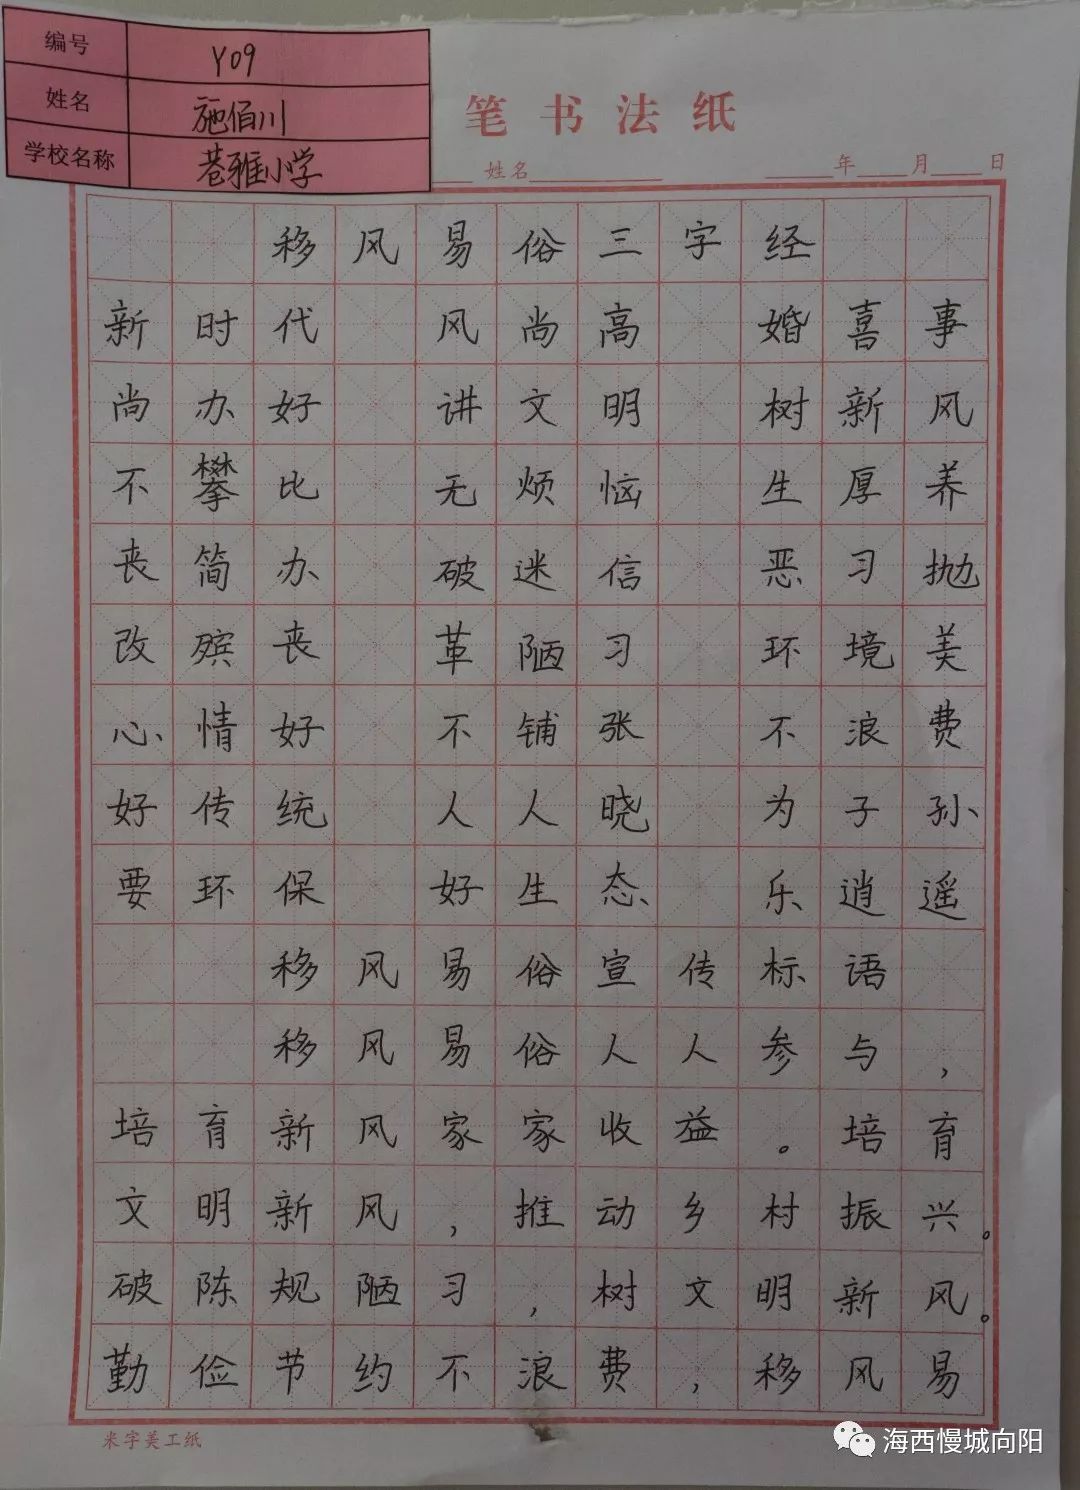 编号 Y09
姓名 施佰川
学校名称 苍雅小学
笔书法纸
姓名 年 月 日
移风易俗三字经
新时代 风尚高 婚喜事
尚办好 讲文明 树新风
不攀比 无烦恼 生厚养
丧简办 破迷信 恶习抛
改殡丧 革陋习 环境美
心情好 不铺张 不浪费
好传统 人人晓 为子孙
要环保 好生态 乐逍遥
移风易俗宣传标语
移风易俗人人参与，
培育新风家家收益。培育
文明新风，推动乡村振兴。
破陈规陋习，树文明新风。
勤俭节约不浪费，移风易
米字美工纸
海西慢城向阳